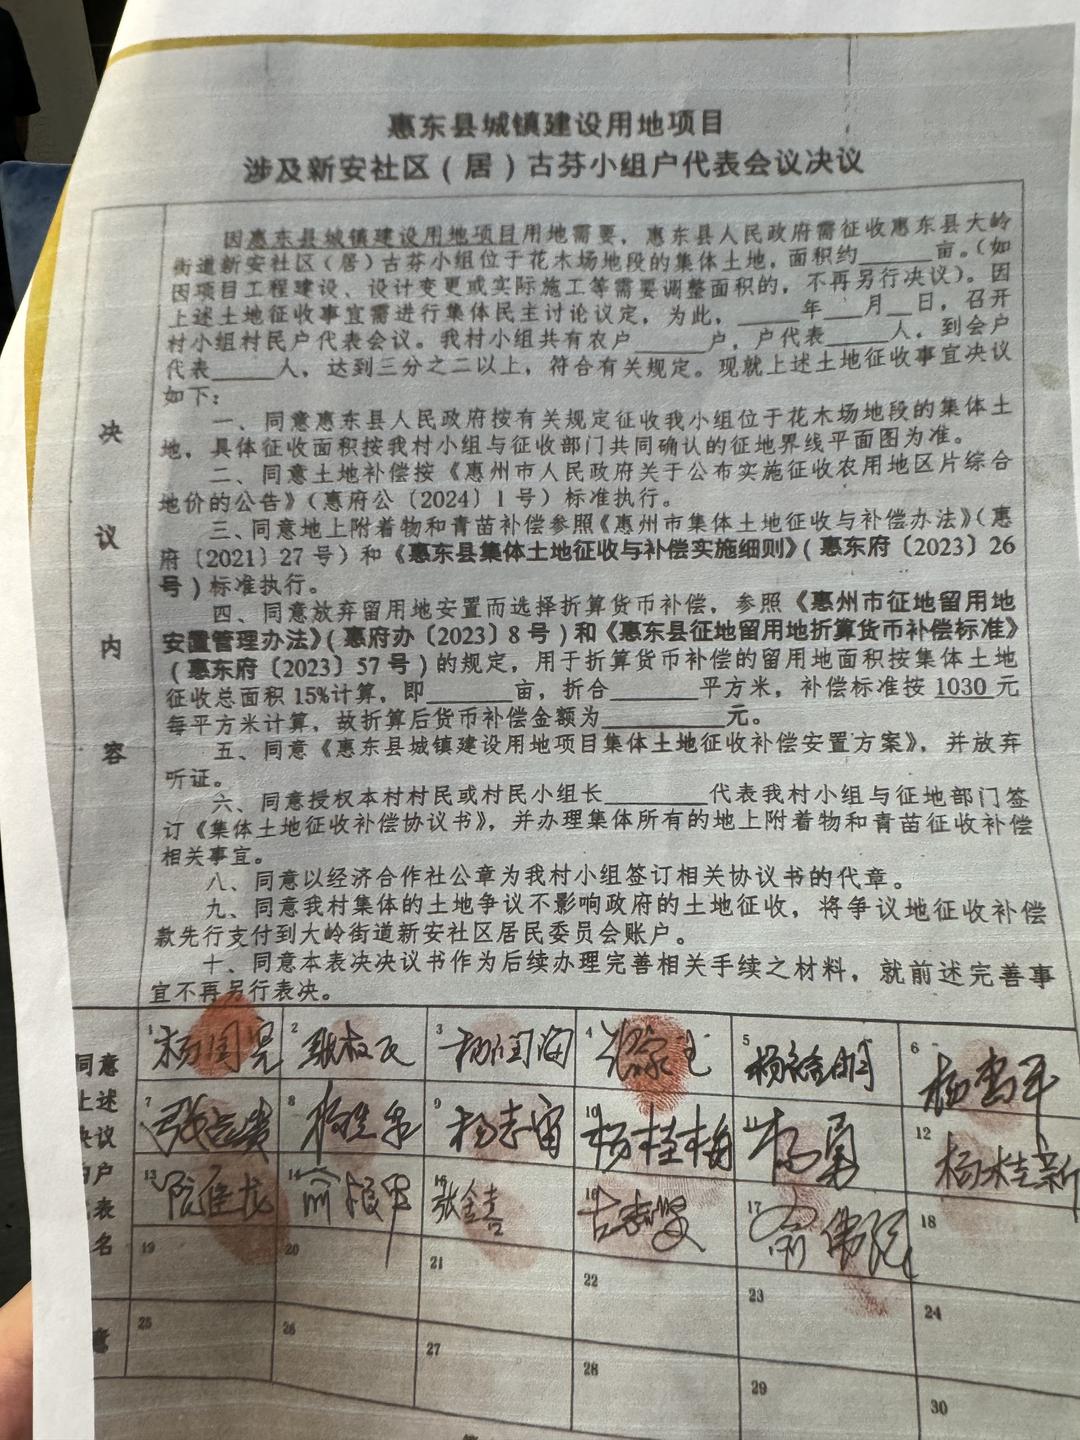 惠东县城镇建设用地项目
涉及新安社区（居）古芬小组户代表会议决议
因惠东县城镇建设用地项目用地需要，惠东县人民政府需征收惠东县大岭
街道新安社区（居）古芬小组位于花木场地段的集体土地，面积约______亩。（如
因项目工程建设、设计变更或实际施工等需要调整面积的，不再另行决议）。因
上述土地征收事宜需进行集体民主讨论议定，为此，_____年___月__日，召开
村小组村民户代表会议。我村小组共有农户______户，户代表_____人，到会户
代表_____人，达到三分之二以上，符合有关规定。现就上述土地征收事宜决议
如下：
一、同意惠东县人民政府按有关规定征收我小组位于花木场地段的集体土
地，具体征收面积按我村小组与征收部门共同确认的征地界线平面图为准。
二、同意土地补偿按《惠州市人民政府关于公布实施征收农用地区片综合
地价的公告》（惠府公〔2024〕1号）标准执行。
三、同意地上附着物和青苗补偿参照《惠州市集体土地征收与补偿办法》（惠
府〔2021〕27号）和《惠东县集体土地征收与补偿实施细则》（惠东府〔2023〕26
号）标准执行。
四、同意放弃留用地安置而选择折算货币补偿，参照《惠州市征地留用地
安置管理办法》（惠府办〔2023〕8号）和《惠东县征地留用地折算货币补偿标准》
（惠东府〔2023〕57号）的规定，用于折算货币补偿的留用地面积按集体土地
征收总面积15%计算，即_______亩，折合_______平方米，补偿标准按1030元
每平方米计算，故折算后货币补偿金额为__________元。
五、同意《惠东县城镇建设用地项目集体土地征收补偿安置方案》，并放弃
听证。
六、同意授权本村村民或村民小组长________代表我村小组与征地部门签
订《集体土地征收补偿协议书》，并办理集体所有的地上附着物和青苗征收补偿
相关事宜。
八、同意以经济合作社公章为我村小组签订相关协议书的代章。
九、同意我村集体的土地争议不影响政府的土地征收，将争议地征收补偿
款先行支付到大岭街道新安社区居民委员会账户。
十、同意本表决决议书作为后续办理完善相关手续之材料，就前述完善事
宜不再另行表决。
决
议
内
容
同意
上述
决议
的户
代表
名
意
1 2 3 杨国海 4 5 6
7 8 9 杨志宙 10 杨桂梅 11 杨勇 12 杨桂新
13 14 15 16 17 18
19 20 21 22 23 24
25 26 27 28 29 30